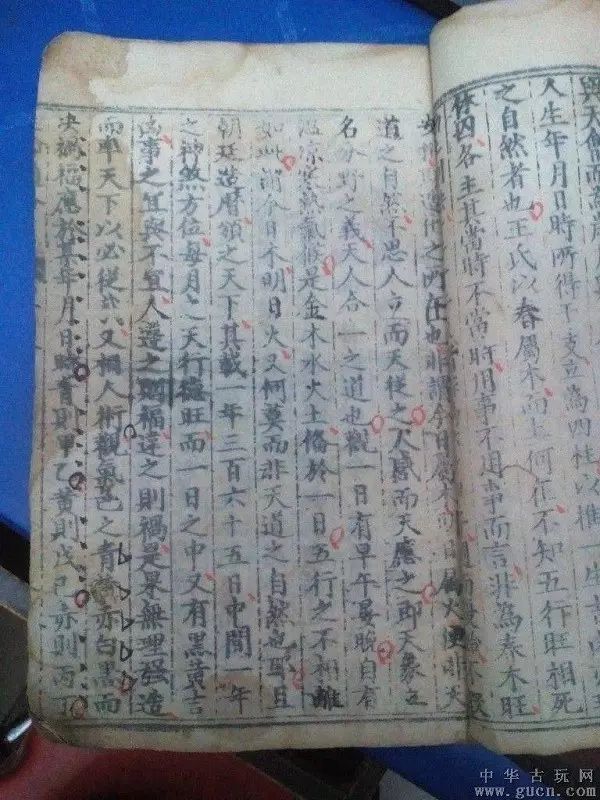 與天會而為歲
人生年月日時所得干支立為四柱以推一生吉
之自然者也王氏以春屬木而土何在不知五行旺相死
休囚各主其當時不當時用事不用事而言非為春木旺
之所在也非謂今日屬木明日屬火便非天
道之自然不思人立而天從之人感而天應之即天象立
名分野之義天人合一之道也觀一日有早午晏晚自有
溫涼寒熱氣候是金木水火土偹於一日五行之不相離
如此謂今日木明日火又何莫而非天道之自然也耶且
朝廷造曆頒之天下其載一年三百六十五日中間一年
之神煞方位每月之天行德旺而一日之中又有黑黃吉
凶事之宜與不宜人遵之則福違之則禍是果無理强造
而率天下以必從哉又相人術觀氣色之青黃赤白黑而
決禍福應於某年月日時青則甲乙黃則戊己赤則丙丁
中华古玩网
www.gucn.com